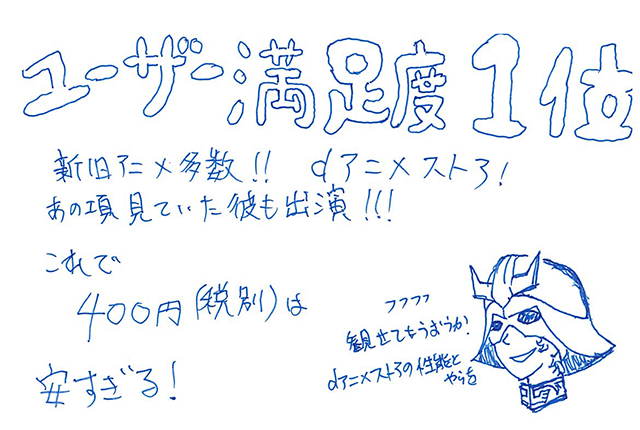 ユーザー満足度1位
新旧アニメ多数!! dアニメストア!
あの項見ていた彼も出演!!!
これで
400円(税別)は
安すぎる!
フフフフ
観せてもらおうか!
dアニメストアの性能と
やらを